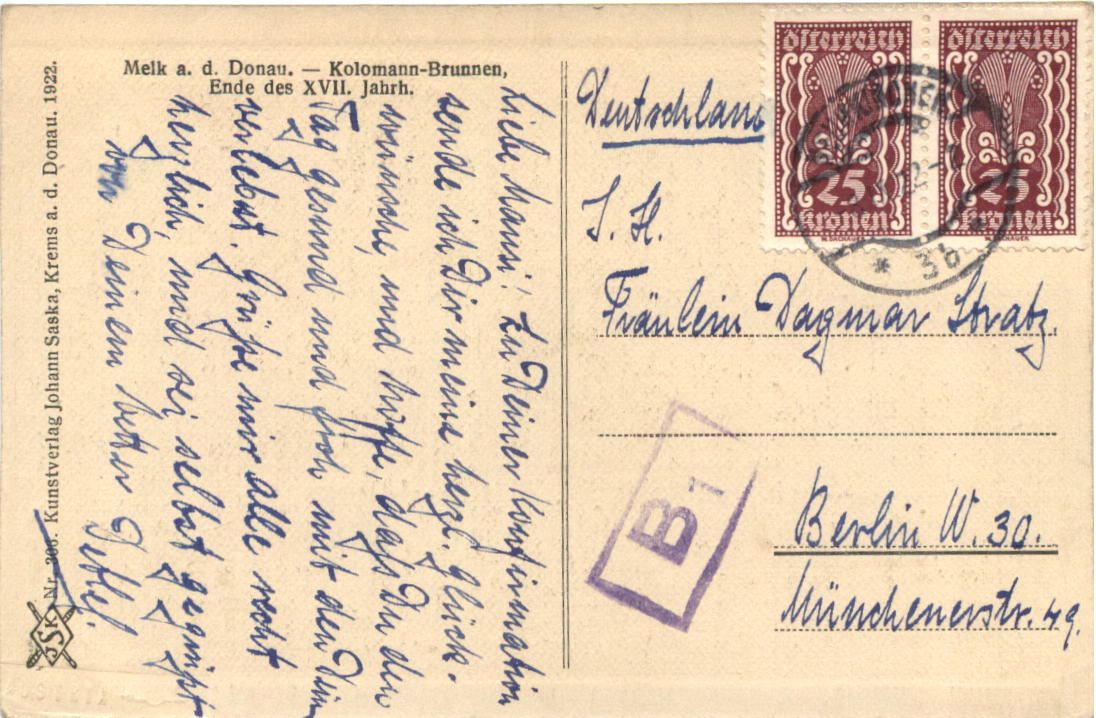 Melk a. d. Donau. — Kolomann-Brunnen,
Ende des XVII. Jahrh.
Nr. 300. Kunstverlag Johann Saska, Krems a. d. Donau. 1922.
JSK
Liebe Zu Deiner Konfirmation
sende ich Dir meine herzl. Glück-
wünsche, und hoffe, daß Du den
Tag gesund und froh mit den Deinen
verlebst. Grüße mir alle recht
herzlich, und sei selbst gegrüßt
von Deinem Vetter Detlef.
Deutschland
Fräulein Dagmar Stratz.
Berlin W. 30.
Münchenerstr. 49.
Österreich
25
Kronen
W. DACHAUER
Österreich
25
Kronen
W. DACHAUER
* 3b *
B1